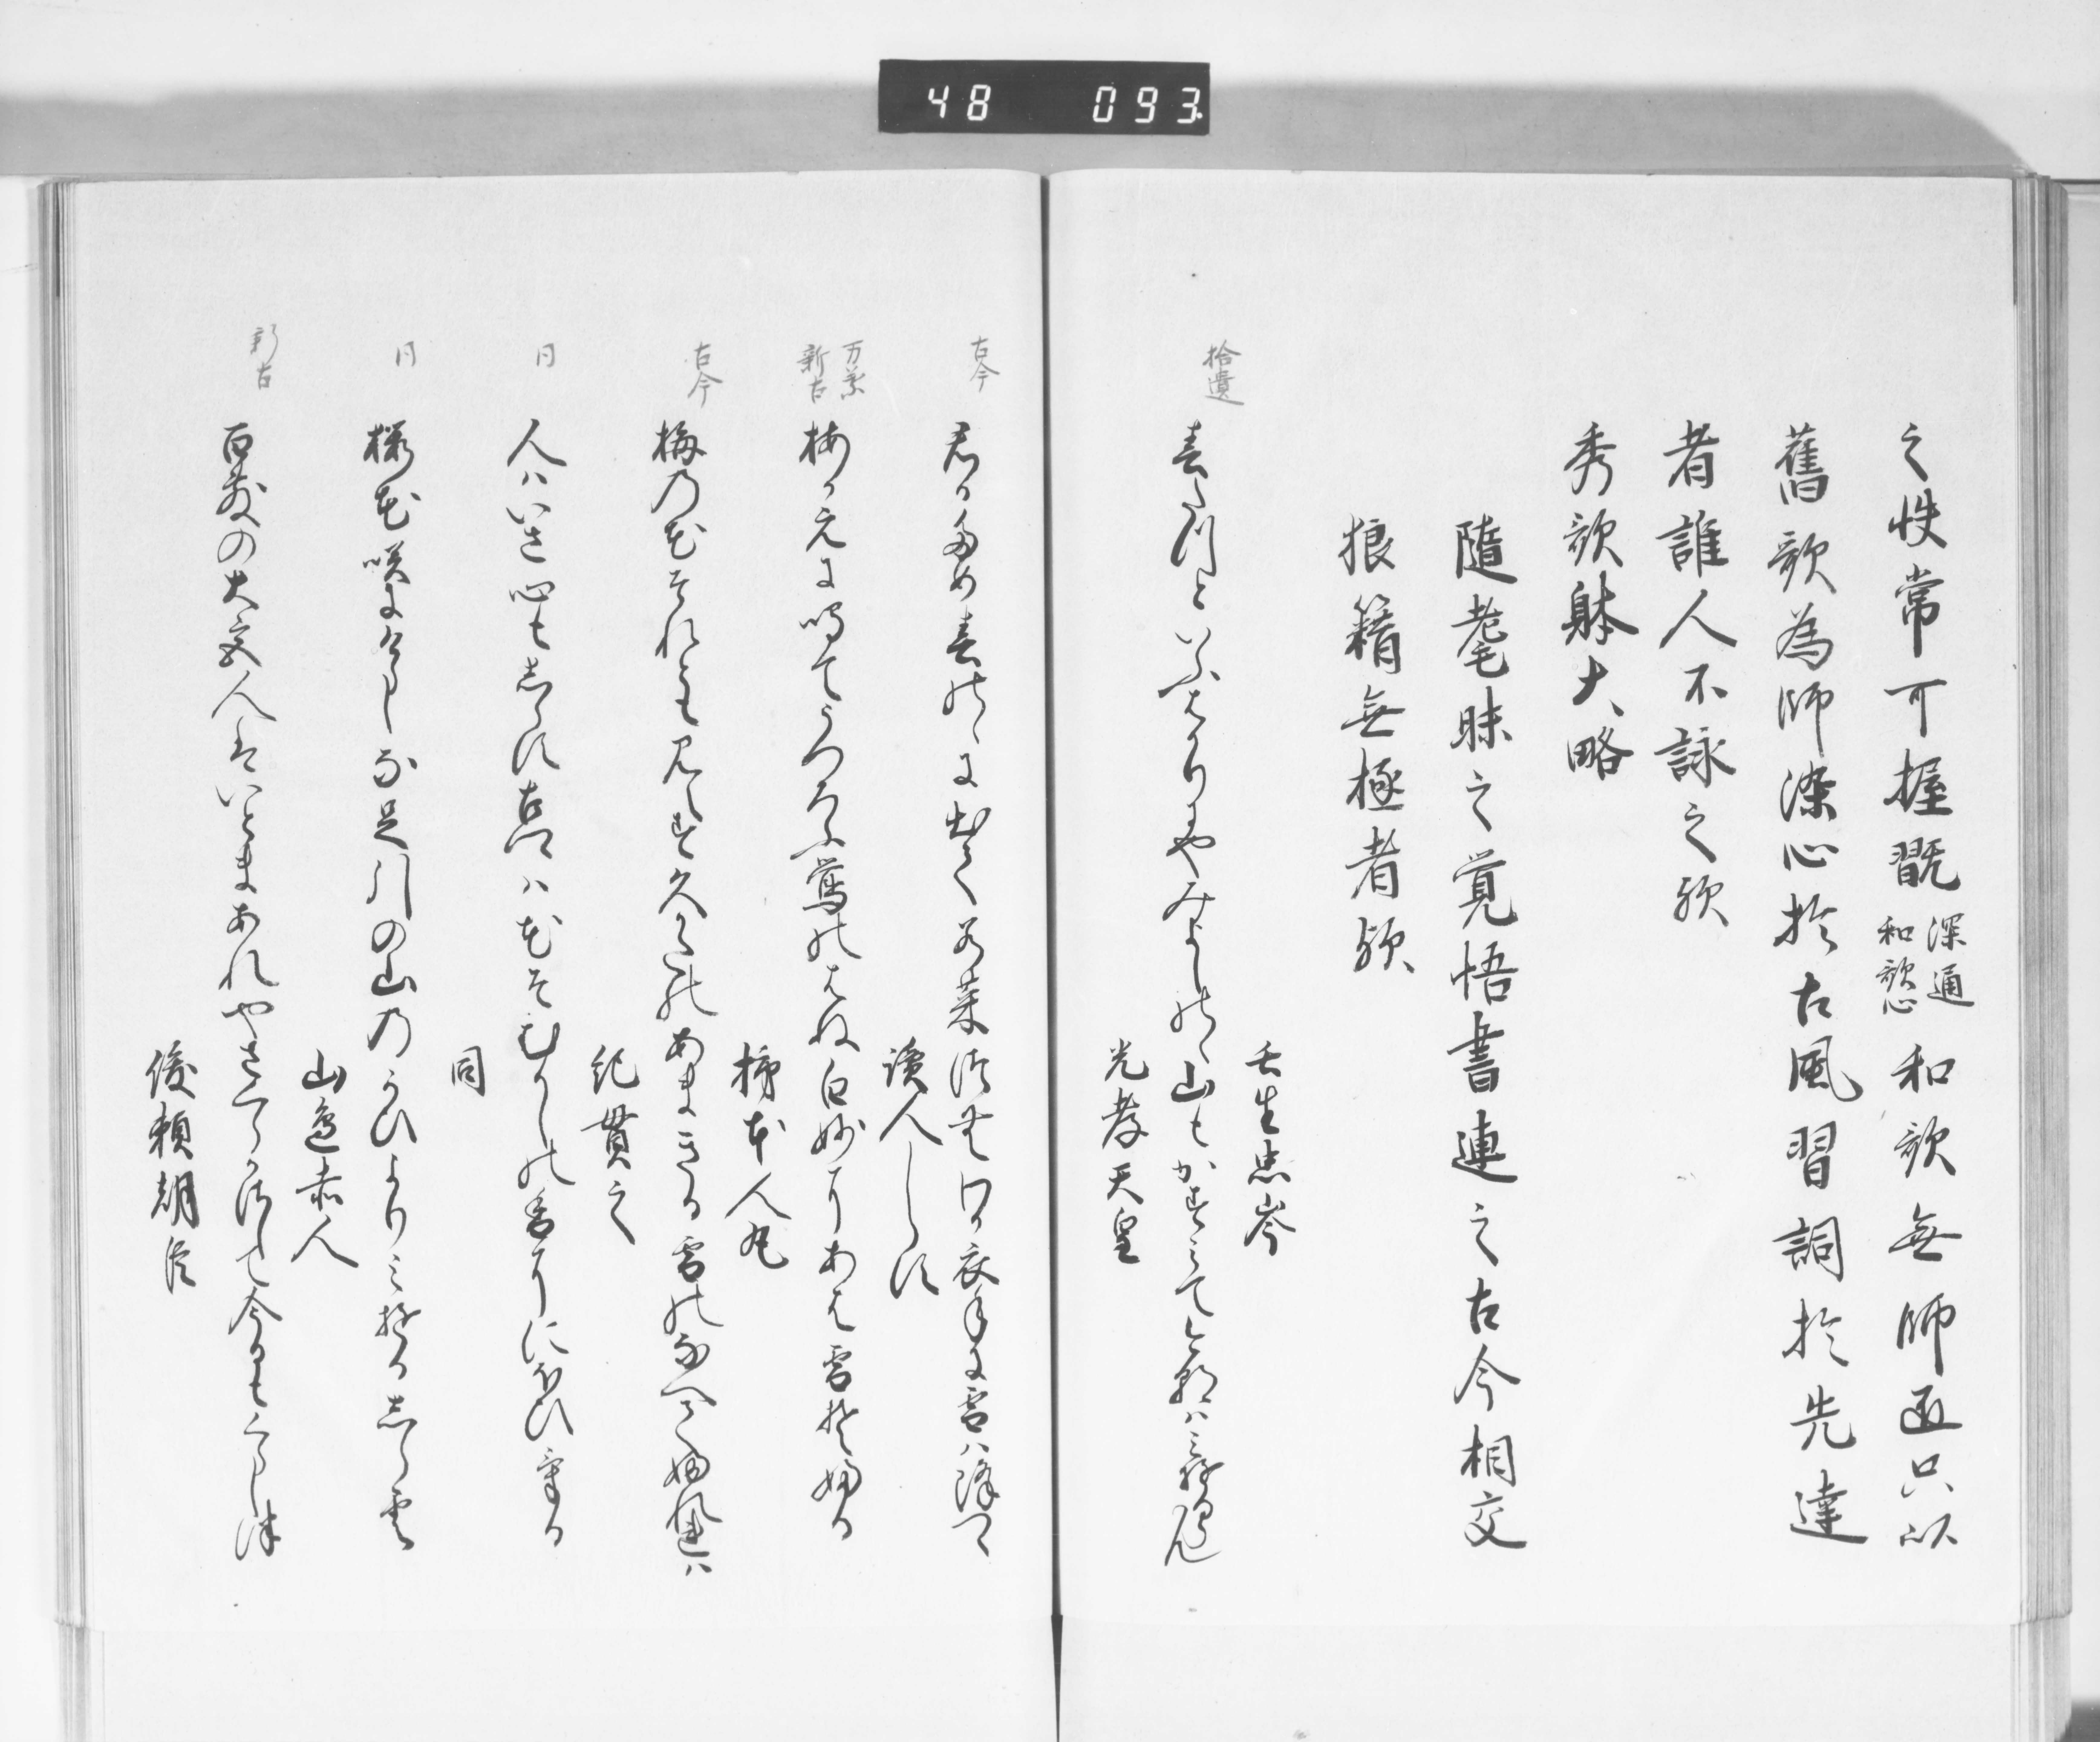 48 093
之佚常可握翫 深通和歌心 和歌無師匠只以
舊歌為師染心於古風習詞於先達
者誰人不詠之欤
秀歌躰大略
随耄昧之覚悟書連之古今相交
狼籍無極者欤
壬生忠岑
拾遺
春たつといふはかりにやみよしのゝ山もかすみてけさハみゆらん
光孝天皇
古今
君かため春のゝに出てわか菜つむわか衣手に雪ハ降つゝ
読人しらす
万葉
新古
梅かえに鳴てうつろふ鶯のはね白妙にあは雪そふる
柿本人丸
古今
梅の花それとも見えす久かたのあまきる雪のなへてふれゝハ
紀貫之
同
人ハいさ心もしらす古郷ハ花そむかしの香ににほひける
同
同
桜花咲にけらしな足引の山のかひよりみゆるしら雲
山邊赤人
新古
百敷の大宮人はいとまあれやさくらかさして今日もくらしつ
俊頼朝臣